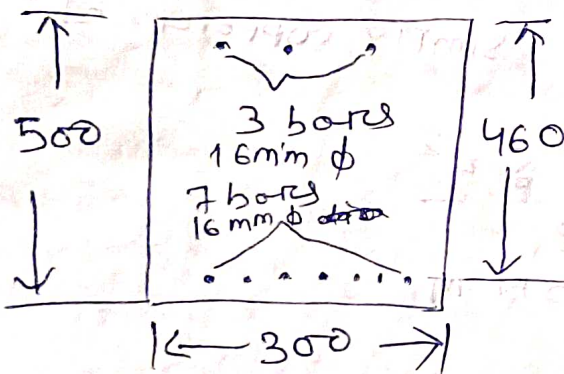 500
3 bars
16mm ϕ
7 bars
16 mm ϕ
460
300